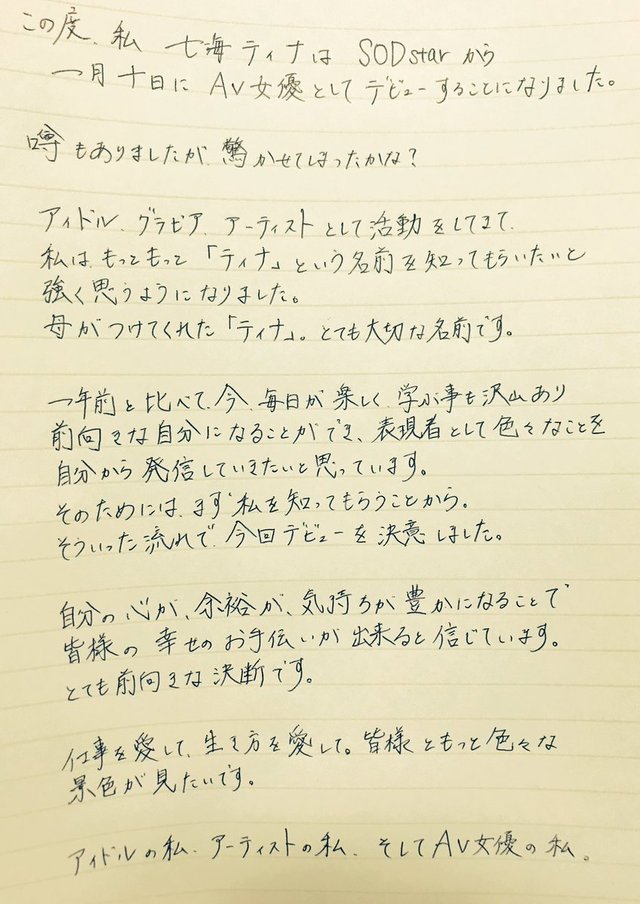 この度、私 七海ティナは SODstarから
一月十日に AV女優としてデビューすることになりました。
噂もありましたが、驚かせてしまったかな?
アイドル、グラビア、アーティストとして活動をしてきて、
私は、もっともっと「ティナ」という名前を知ってもらいたいと
強く思うようになりました。
母がつけてくれた「ティナ」。とても大切な名前です。
一年前と比べて、今、毎日が楽しく、学ぶ事も沢山あり
前向きな自分になることができ、表現者として色々なことを
自分から発信していきたいと思っています。
そのためには、まず私を知ってもらうことから。
そういった流れで、今回デビューを決意しました。
自分の心が、余裕が、気持ちが豊かになることで
皆様の幸せのお手伝いが出来ると信じています。
とても前向きな決断です。
仕事を愛して、生き方を愛して。皆様ともっと色々な
景色が見たいです。
アイドルの私、アーティストの私、そしてAV女優の私。